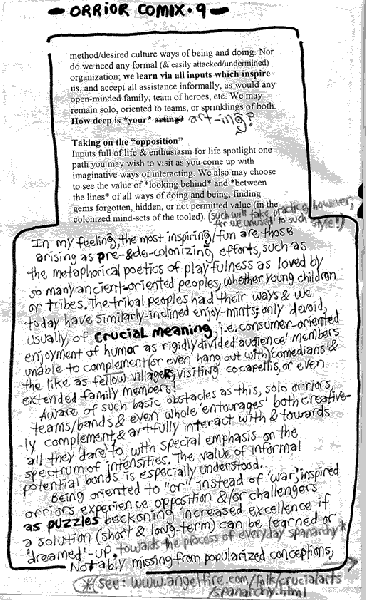 - ORRIOR COMIX · 9 -
method/desired culture ways of being and doing. Nor
do we need any formal (& easily attacked/undermined)
organization; we learn via all inputs which inspire
us, and accept all assistance informally, as would any
open-minded family, team of heroes, etc. We may
remain solo, oriented to teams, or sprinklings of both.
How deep is *your* art-ing?
Taking on the "opposition"
Inputs full of life & enthusiasm for life spotlight one
path you may wish to visit as you come up with
imaginative ways of interacting. We also may choose
to see the value of *looking behind* and *between
the lines* of all ways of doing and being, finding
gems forgotten, hidden, or not permitted value (in the
colonized mind-sets of the tooled). (such will take practice, however,
for we unused to such style!)
In my feeling, the most inspiring/fun are those
arising as pre- & de-colonizing efforts, such as
the metaphorical poetics of playfulness as loved by
so many ancient-oriented peoples, whether young children
or tribes. The tribal peoples had their ways & we
today have similarly-inclined enjoy-ments; only devoid,
usually, of crucial meaning, i.e. consumer-oriented
enjoyment of humor as rigidly divided 'audience' members
unable to complement or even hang out with comedians &
the like as fellow villagers, visiting cocapellis, or even
extended family members!
Aware of such basic obstacles as this, solo orriors,
teams/bands & even whole 'entourages' both creative-
ly complement & artfully interact with & towards
all they dare to, with special emphasis on the
spectrum of intensities. The value of informal
potential bonds is especially understood.
Being oriented to "or" instead of "war," inspired
orriors experience opposition &/or challengers
as puzzles beckoning increased excellence if
a solution (short & long-term) can be learned or
'dreamed'-up, towards the process of everyday spanarchy*
Notably missing from popularized conceptions,
* see: www.angelfire.com/folk/crucialarts
/spanarchy.html